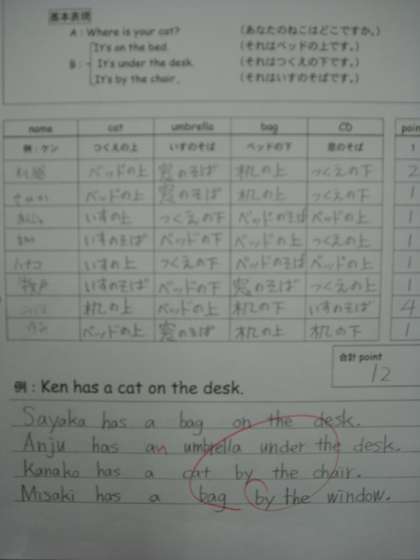 基本表現
A : Where is your cat? (あなたのねこはどこですか。)
It's on the bed. (それはベッドの上です。)
B : It's under the desk. (それはつくえの下です。)
It's by the chair. (それはいすのそばです。)
name cat umbrella bag CD poin
例：ケン つくえの上 いすのそば ベッドの下 窓のそば 1
ベッドの上 窓のそば 机の上 つくえの下 2
ベッドの上 窓のそば 机の上 つくえの下 1
いすの上 つくえの下 ベッドのそば ベッドの上 1
いすのそば ベッドの下 ベッドの上 つくえの上 1
いすの上 つくえの下 ベッドのそば ベッドの上 1
いすのそば ベッドの下 窓のそば つくえの上 1
机の上 ベッドの上 机の下 いすのそば 4
ベッドの上 窓のそば 机の上 机の下 1
合計 point
12
例 : Ken has a cat on the desk.
Sayaka has a bag on the desk.
Anju has an umbrella under the desk.
Kanako has a cat by the chair.
Misaki has a bag by the window.